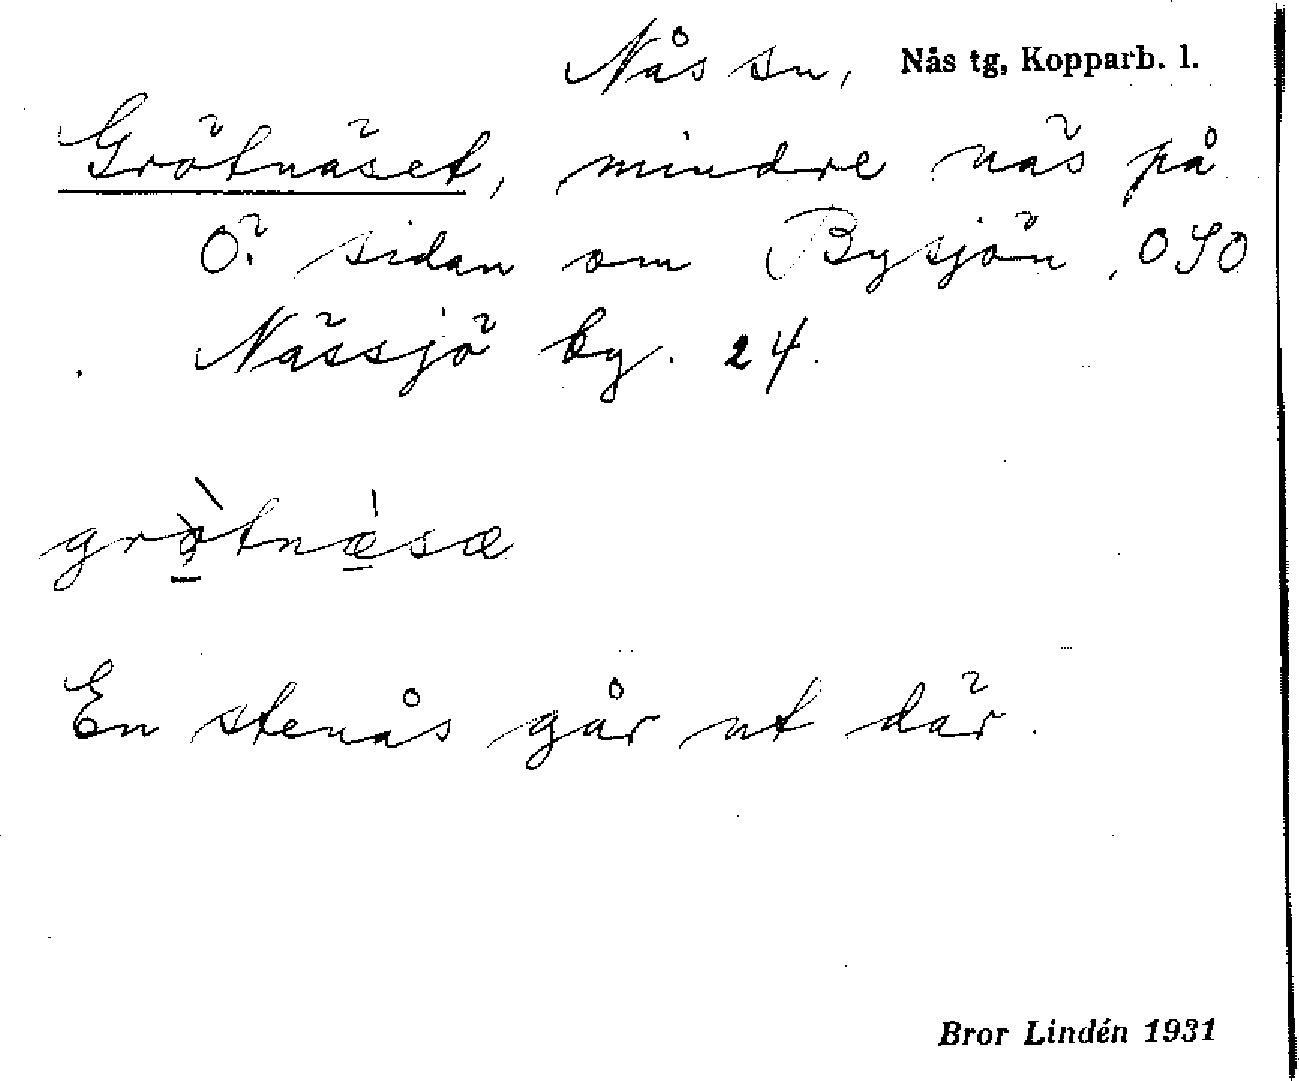 Nås sn, Nås tg, Kopparb. l.
Grötnäset, mindre näs på
Ö. sidan om Bysjön, OSO
Nässjö by. 24.
gròtnæ̀sæ
En stenås går ut där.
Bror Lindén 1931